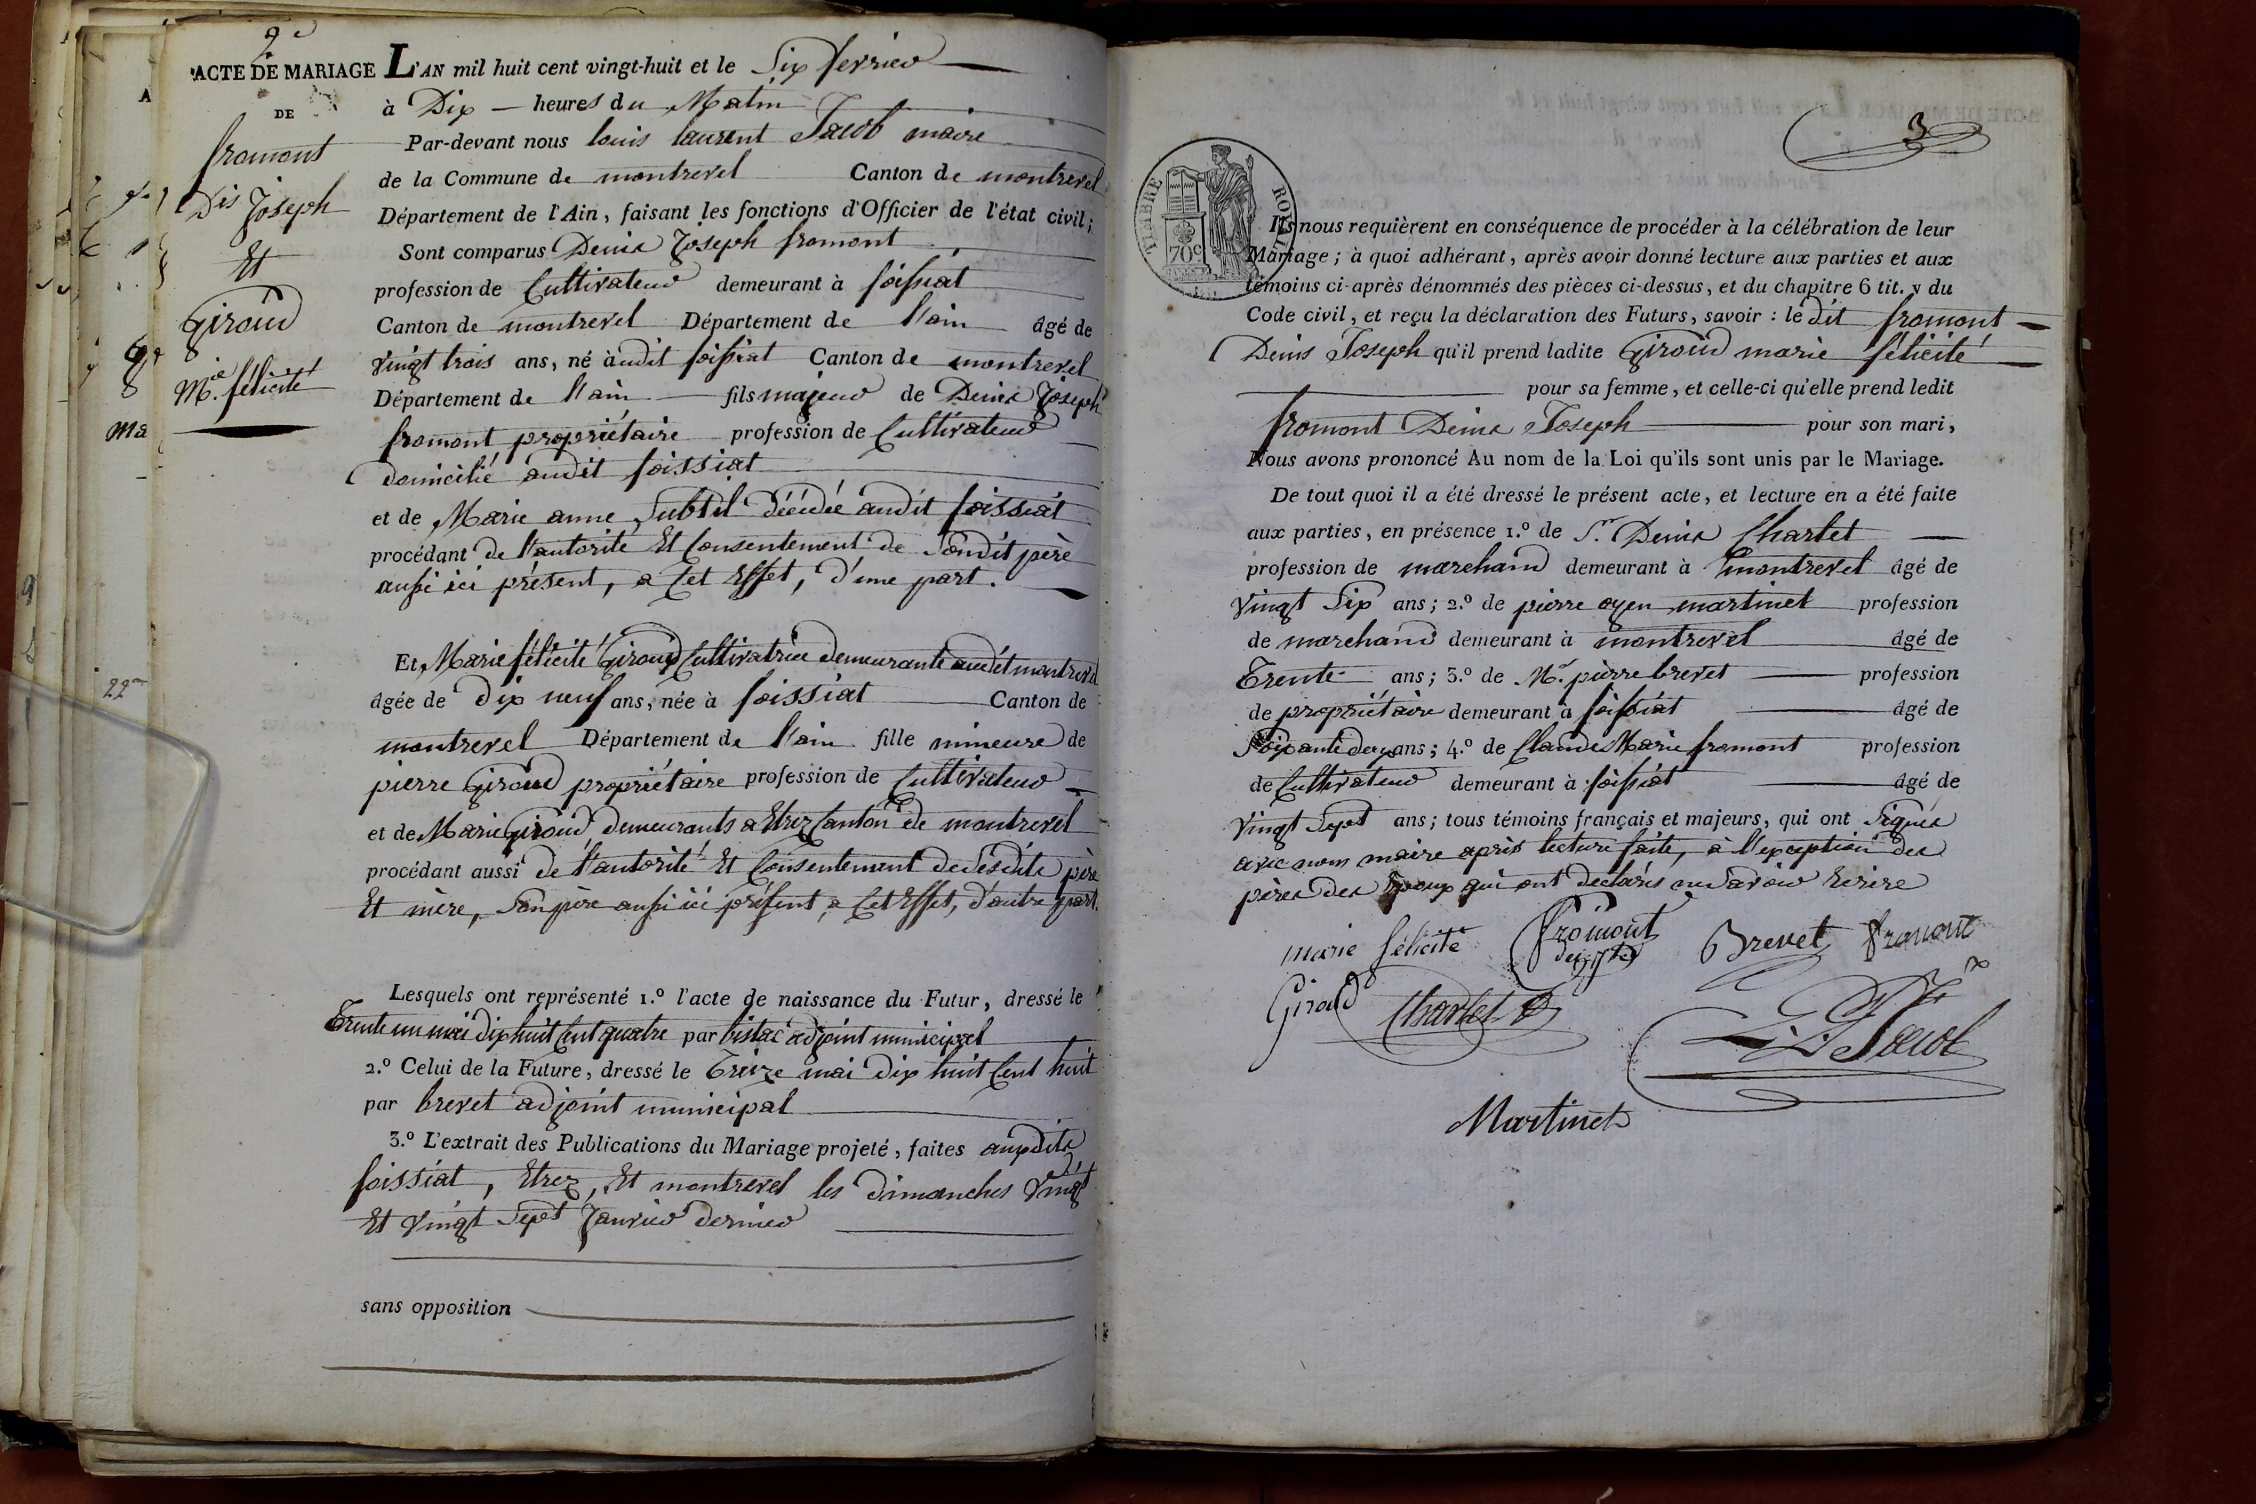 2e
ACTE DE MARIAGE
DE
fromont
Dis Joseph
Et
Giroud
Mie félicité
L'AN mil huit cent vingt-huit et le Six fevrier
à Dix heures du Matin
Par-devant nous louis laurent Jacob maire
de la Commune de montrevel Canton de montrevel
Département de l'Ain, faisant les fonctions d'Officier de l'état civil;
Sont comparus Denis Joseph fromont
profession de Cultivateur demeurant à foissiat
Canton de montrevel Département de l'ain âgé de
vingt trois ans, né audit foissiat Canton de montrevel
Département de l'ain fils majeur de Denis Joseph
fromont propriétaire profession de Cultivateur
domicilié audit foissiat
et de Marie anne Subtil décédée audit foissiat
procédant de l'autorité Et Consentement de Sondit père
aussi ici présent, a Cet Effet, d'une part.
Et Marie félicité Giroud Cultivatrice demeurante audit montrevel
âgée de dix neuf ans, née à foissiat Canton de
montrevel Département de l'ain fille mineure de
pierre Giroud propriétaire profession de Cultivateur
et de Marie Giroud demeurants a Etrez Canton de montrevel
procédant aussi de l'autorité Et Consentement de Sesdits père
Et mère, Son père aussi ici présent, a Cet Effet, d'autre part.
Lesquels ont représenté 1.º l'acte de naissance du Futur, dressé le
Trente un mai dix huit Cent quatre par bistac adjoint municipal
2.º Celui de la Future, dressé le Treize mai dix huit Cent huit
par brevet adjoint municipal
3.º L'extrait des Publications du Mariage projeté, faites auxdits
foissiat, Etrez, Et montrevel les dimanches Vingt
Et Vingt Sept Janvier dernier
sans opposition
3
TIMBRE ROYAL
70c
Ils nous requièrent en conséquence de procéder à la célébration de leur
Mariage; à quoi adhérant, après avoir donné lecture aux parties et aux
témoins ci-après dénommés des pièces ci-dessus, et du chapitre 6 tit. v du
Code civil, et reçu la déclaration des Futurs, savoir: le dit fromont
Denis Joseph qu'il prend ladite Giroud marie félicité
pour sa femme, et celle-ci qu'elle prend ledit
fromont Denis Joseph pour son mari,
Nous avons prononcé Au nom de la Loi qu'ils sont unis par le Mariage.
De tout quoi il a été dressé le présent acte, et lecture en a été faite
aux parties, en présence 1.º de Sr. Denis Charlet
profession de marchand demeurant à montrevel âgé de
vingt Six ans; 2.º de pierre oyen martinet profession
de marchand demeurant à montrevel âgé de
Trente ans; 3.º de Mr. pierre brevet profession
de propriétaire demeurant à foissiat âgé de
Soixante deux ans; 4.º de Claude Marie fromont profession
de Cultivateur demeurant à foissiat âgé de
vingt Sept ans; tous témoins français et majeurs, qui ont Signés
avec nous maire après lecture faite, à l'exception des
pères des Epoux qui ont déclarés ne Savoir Ecrire
marie félicité
Giroud
fromont
Brevet
fromont
Charlet
Jacob
Martinet